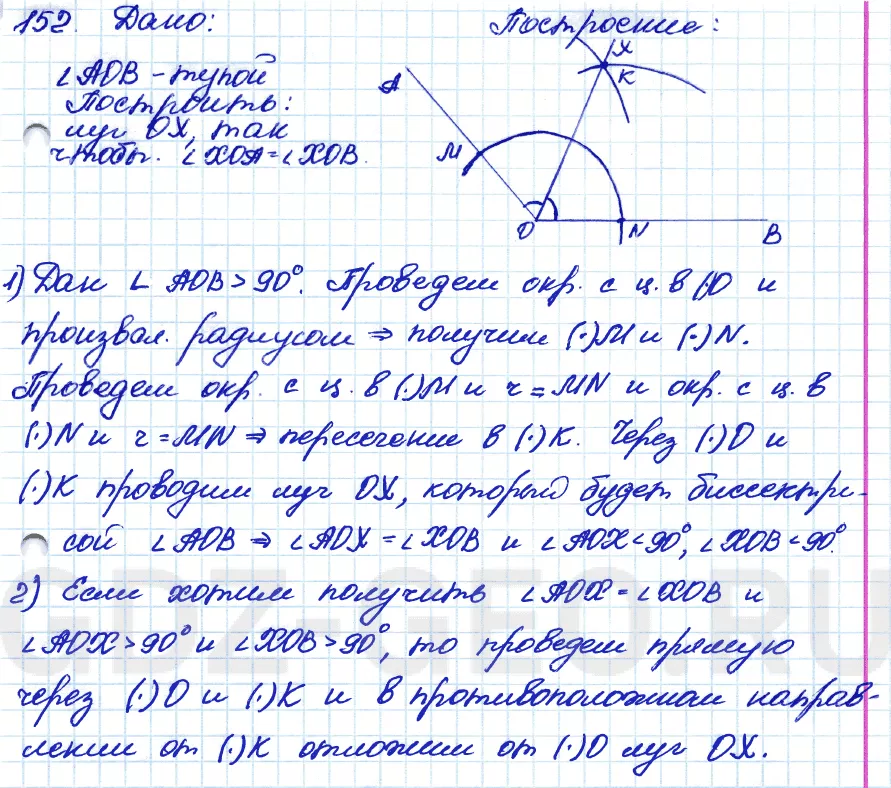 152. Дано:
∠AOB - тупой
Построить:
луч OX, так
чтобы. ∠XOA=∠XOB.
Построение:
X
K
A
M
O
N
B
1) Дан ∠ AOB > 90°. Проведем окр. с ц. в (·)O и
произвол. радиусом ⇒ получим (·)M и (·)N.
Проведем окр. с ц. в (·)M и r = MN и окр. с ц. в
(·)N и r = MN ⇒ пересечение в (·)K. Через (·)O и
(·)K проводим луч OX, который будет биссектри-
сой ∠AOB ⇒ ∠AOX = ∠XOB и ∠AOX < 90°, ∠XOB < 90°.
2) Если хотим получить ∠AOX = ∠XOB и
∠AOX > 90° и ∠XOB > 90°, то проведем прямую
через (·)O и (·)K и в противоположном направ-
лении от (·)K отложим от (·)O луч OX.
GDZ-GEO.RU